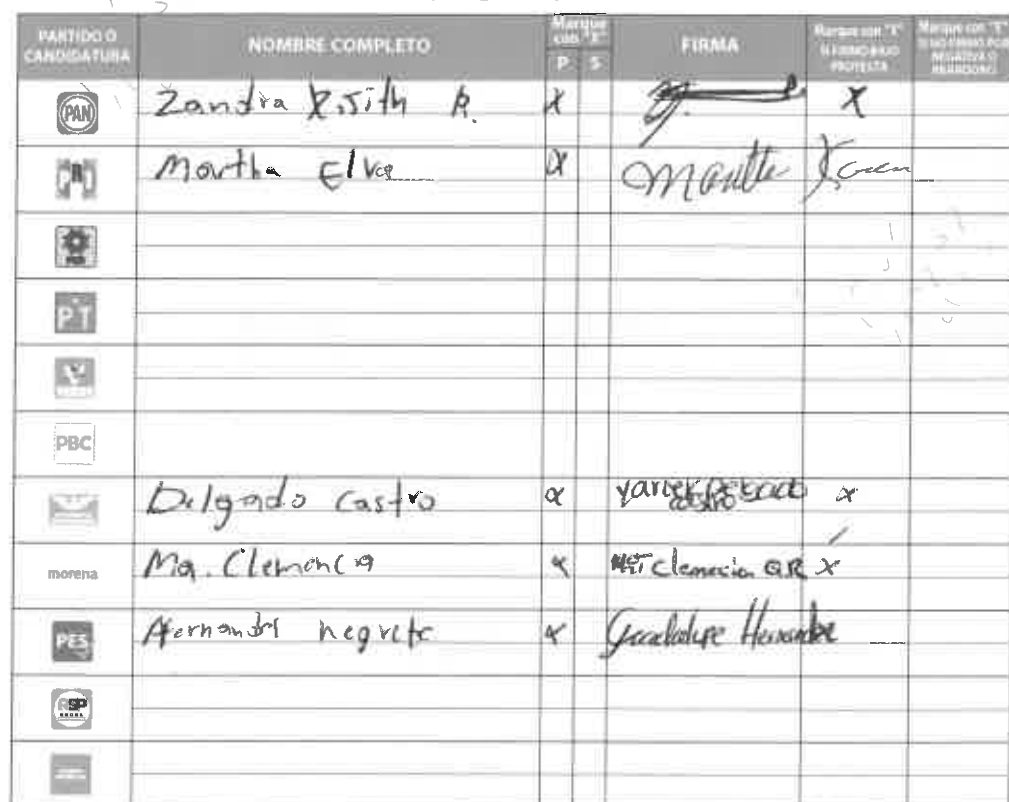 PARTIDO O CANDIDATURA NOMBRE COMPLETO Marque con "X" P S FIRMA Marque con "X" SI FIRMÓ BAJO PROTESTA Marque con "X" SI NO FIRMÓ POR NEGATIVA O ABANDONO
PAN Zandra R. X X
Martha Elva X Martha
PRD
PT
VERDE
PBC
Delgado Castro X Delgado castro X
morena Ma. Clemencia X Clemencia GR X
PES Hernandez negrete X Guadalupe Hernandez
RSP